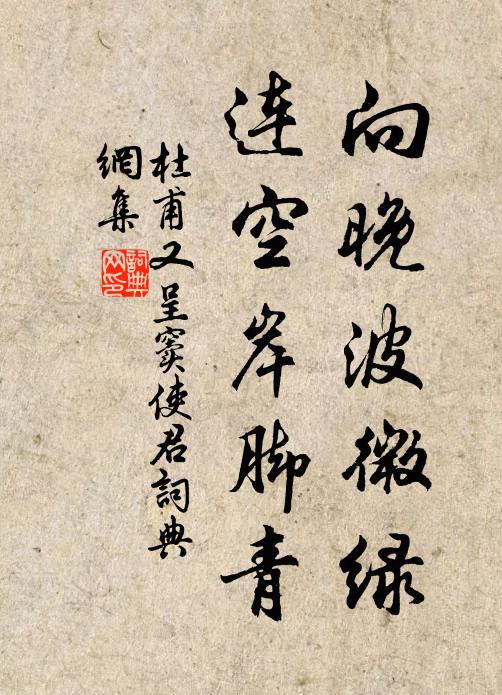 向晚波微绿
连空岸脚青
杜甫又呈窦使君词典
網集
詞典
网印